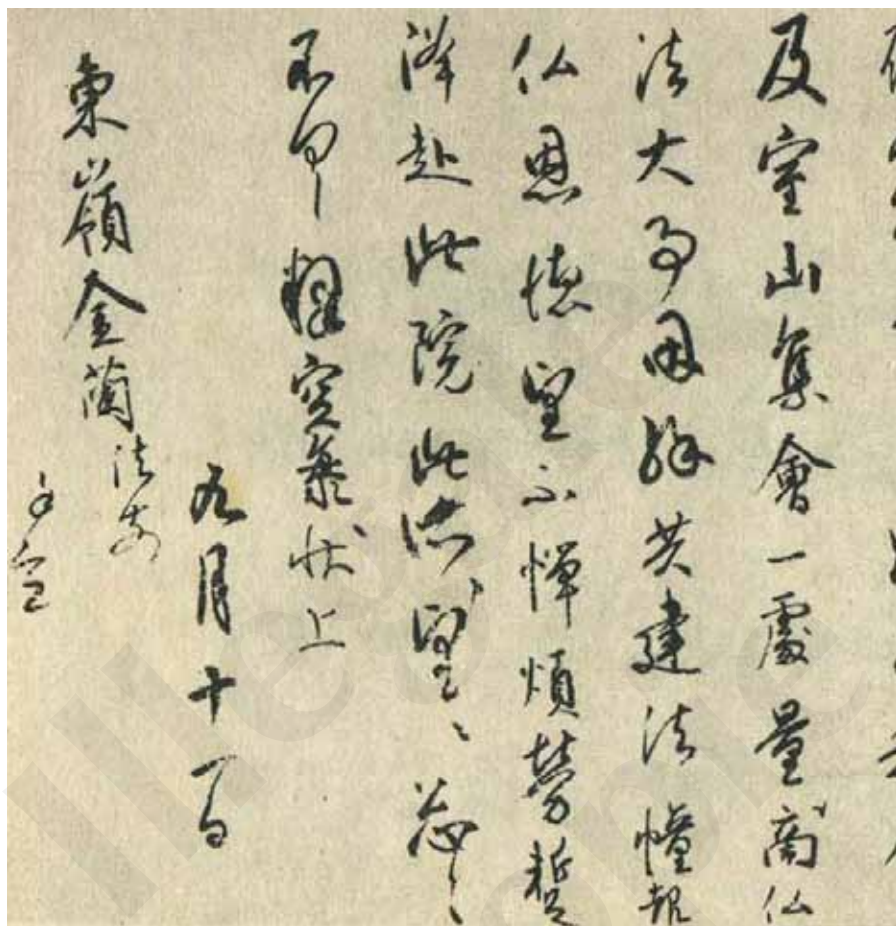 及室山集會一處量商仏
法大事因縁共建法幢報
仏恩徳望不憚煩勞蹔
降赴此院此所望々忩々
不具釋空海状上
九月十一日
東嶺金蘭法前
謹空